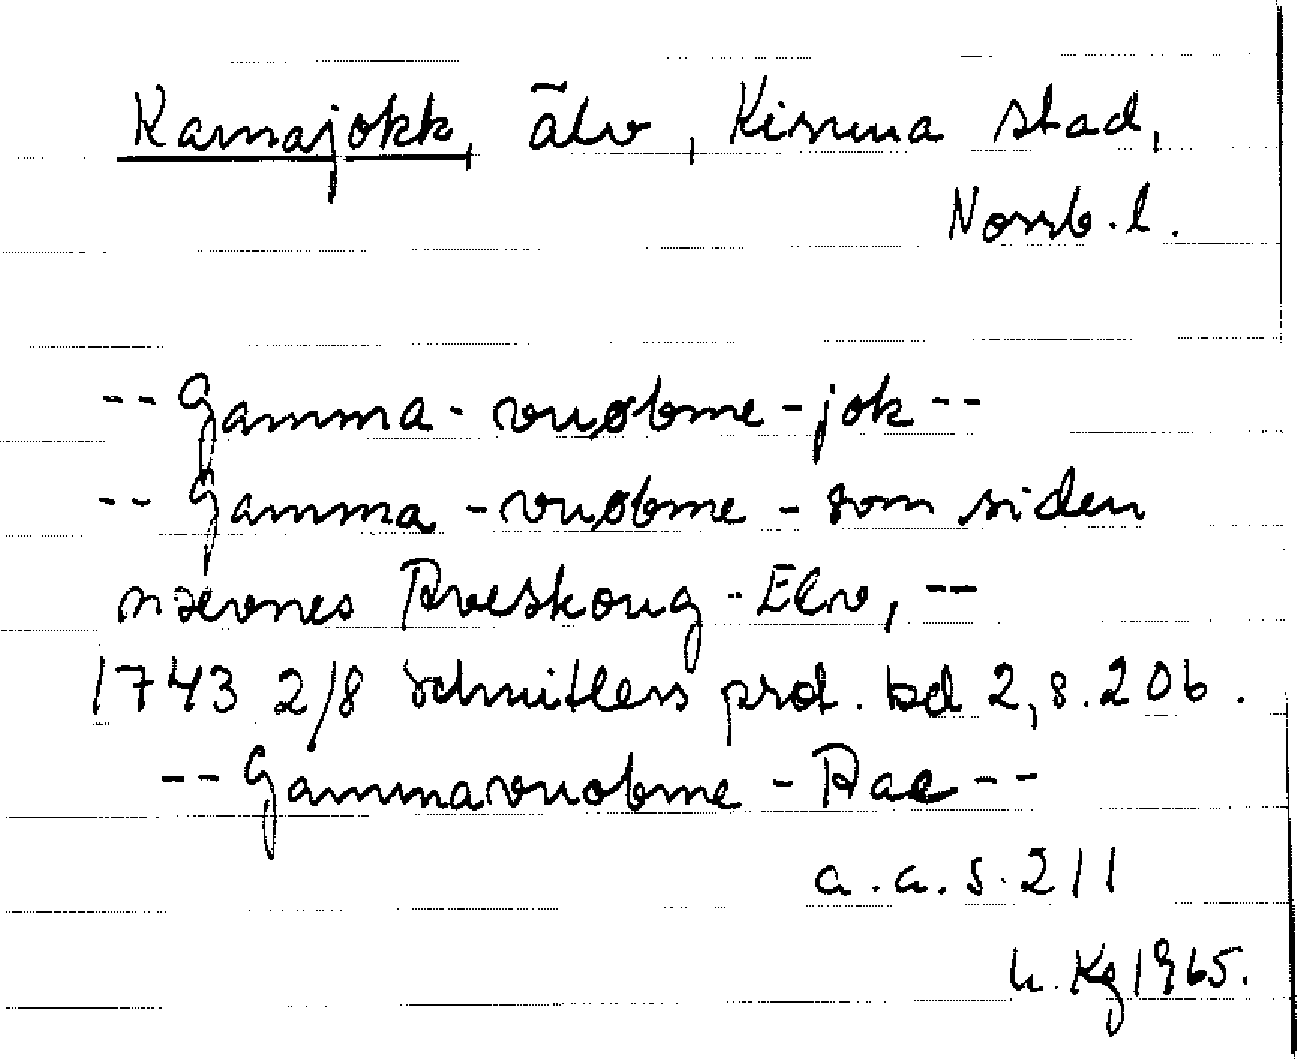 Kamajokk, älv, Kiruna stad,
Norrb. l.
-- Gamma - vuobme - jok --
-- Gamma - vuobme - som siden
nævnes Aveskoug - Elv, --
1743 2/8 Schnitlers prot. bd 2, s. 206.
-- Gammavuobme - Aae --
a. a. s. 211
h. Kg 1965.